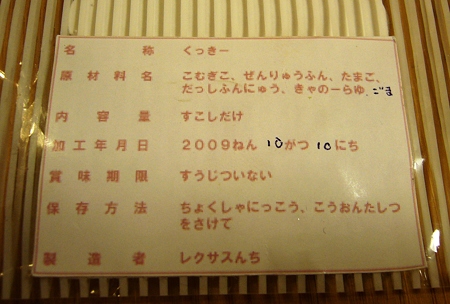 名称 くっきー
原材料名 こむぎこ、ぜんりゅうふん、たまご、
だっしふんにゅう、きゃのーらゆ、ごま
内容量 すこしだけ
加工年月日 2009ねん 10がつ 10にち
賞味期限 すうじついない
保存方法 ちょくしゃにっこう、こうおんたしつ
をさけて
製造者 レクサスんち